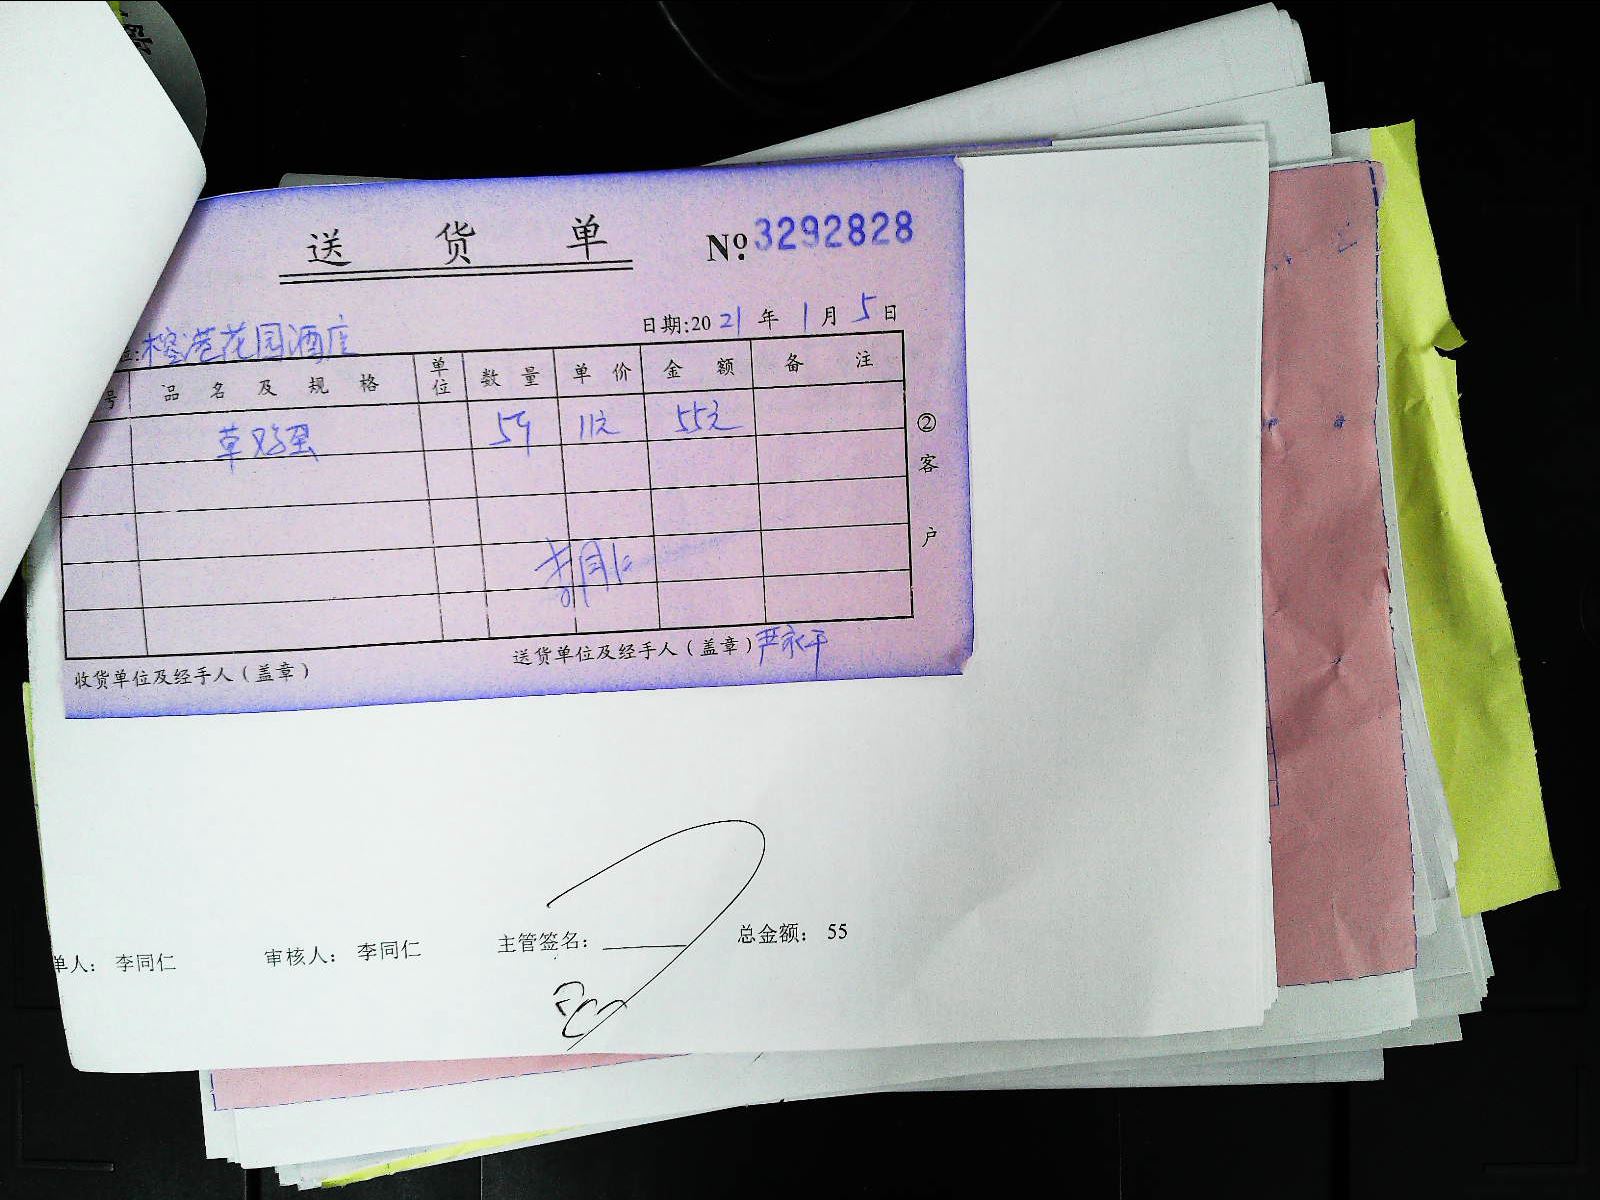 送货单
№ 3292828
榕港花园酒店
日期:2021年1月5日
号 品名及规格 单位 数量 单价 金额 备注
草鸡蛋 5斤 11元 55元
②客户
李同仁
送货单位及经手人(盖章)尹永平
收货单位及经手人(盖章)
单人: 李同仁 审核人: 李同仁 主管签名: 总金额: 55